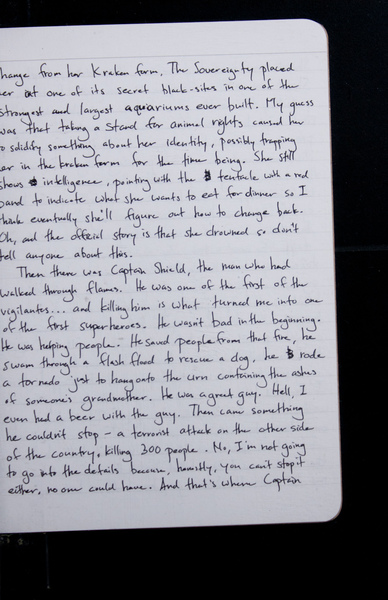 hange from her Kraken form. The Sovereignty placed
er at one of its secret black-sites in one of the
strongest and largest aquariums ever built. My guess
was that taking a stand for animal rights caused her
o solidify something about her identity, possibly trapping
er in the kraken form for the time being. She still
shows intelligence, pointing with the tentacle with a red
band to indicate what she wants to eat for dinner so I
think eventually she'll figure out how to change back.
Oh, and the official story is that she drowned so don't
tell anyone about this.
Then there was Captain Shield, the man who had
walked through flames. He was one of the first of the
vigilantes... and killing him is what turned me into one
of the first superheroes. He wasn't bad in the beginning.
He was helping people. He saved people from that fire, he
swam through a flash flood to rescue a dog, he rode
a tornado just to hang onto the urn containing the ashes
of someone's grandmother. He was a great guy. Hell, I
even had a beer with the guy. Then came something
he couldn't stop - a terrorist attack on the other side
of the country, killing 300 people. No, I'm not going
to go into the details because, honestly, you can't stop it
either, no one could have. And that's where Captain